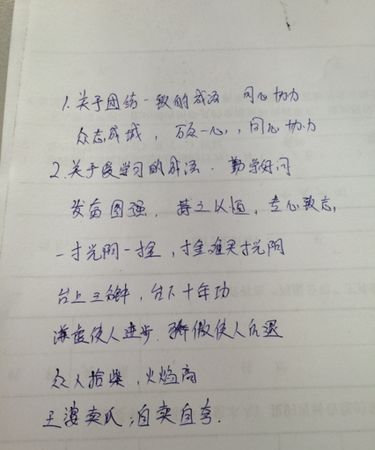 1.关于团结一致的成语 同心协力
众志成城，万众一心，同心协力
2.关于爱学习的成语.勤学好问
发奋图强，持之以恒，专心致志，
一寸光阴一寸金，寸金难买寸光阴
台上三分钟，台下十年功
谦虚使人进步.骄傲使人后退
众人拾柴，火焰高
王婆卖瓜，自卖自夸.